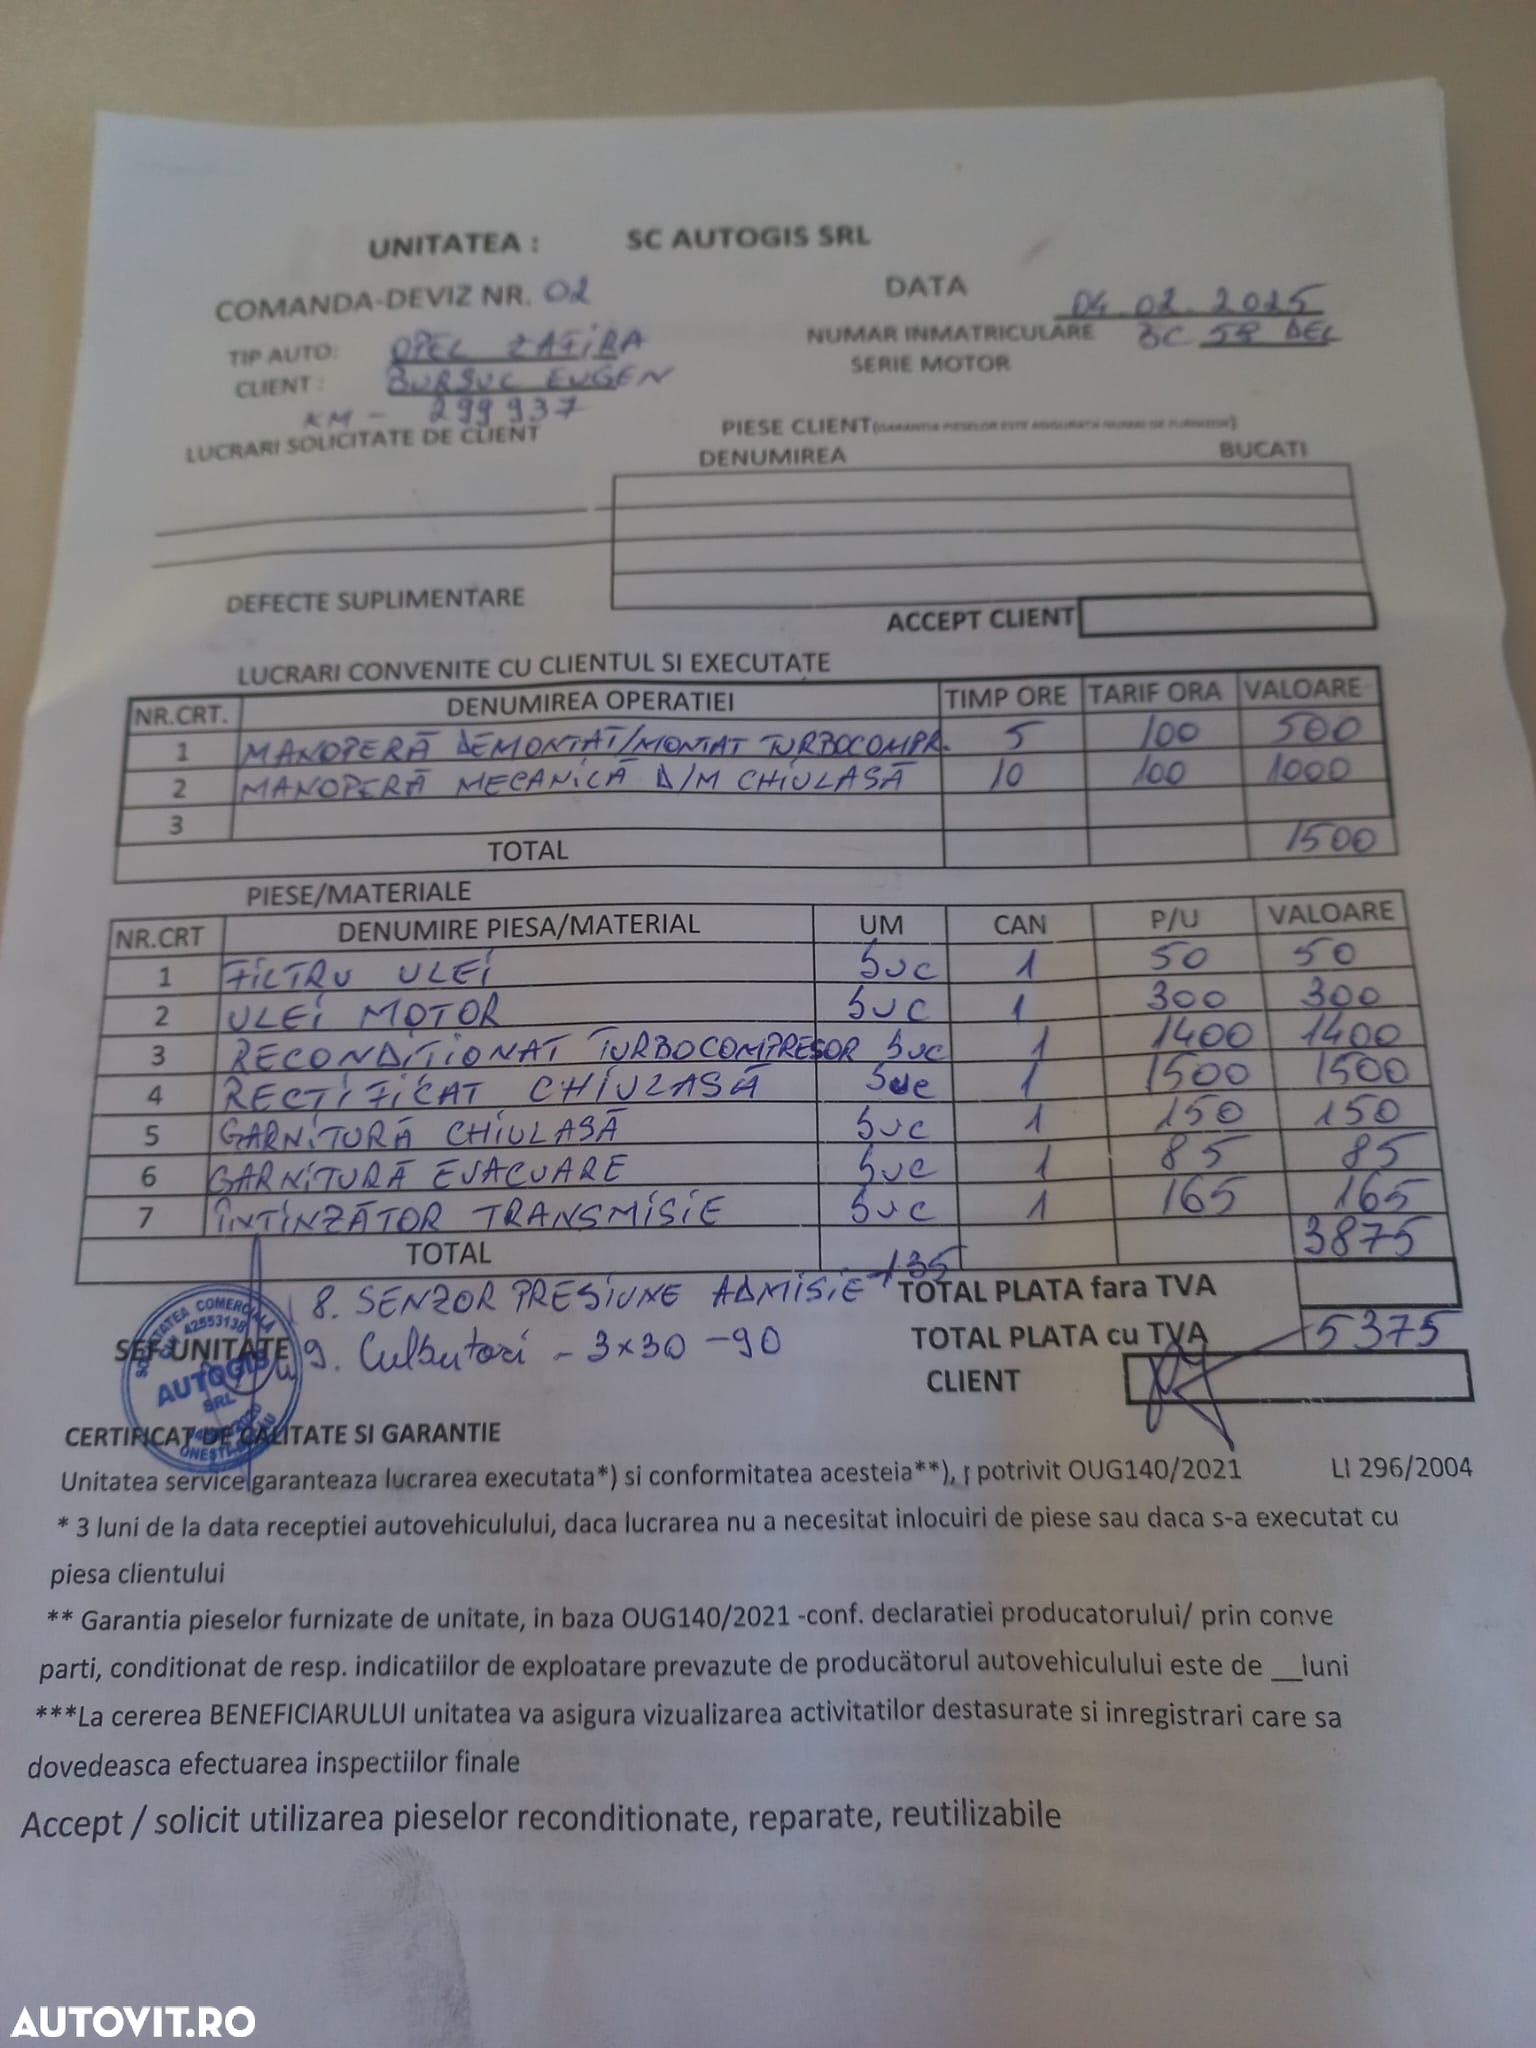 UNITATEA : SC AUTOGIS SRL
COMANDA-DEVIZ NR. 02 DATA 04.02.2025
TIP AUTO: OPEL ZAFIRA NUMAR INMATRICULARE BC 58 DEL
CLIENT : BURSUC EUGEN SERIE MOTOR
KM - 299937
LUCRARI SOLICITATE DE CLIENT PIESE CLIENT(GARANTIA PIESELOR ESTE ASIGURATA NUMAI DE FURNIZOR)
DENUMIREA BUCATI
DEFECTE SUPLIMENTARE
ACCEPT CLIENT
LUCRARI CONVENITE CU CLIENTUL SI EXECUTATE
NR.CRT. DENUMIREA OPERATIEI TIMP ORE TARIF ORA VALOARE
1 MANOPERĂ DEMONTAT/MONTAT TURBOCOMPR. 5 100 500
2 MANOPERĂ MECANICĂ D/M CHIULASĂ 10 100 1000
3
TOTAL 1500
PIESE/MATERIALE
NR.CRT DENUMIRE PIESA/MATERIAL UM CAN P/U VALOARE
1 FILTRU ULEI BUC 1 50 50
2 ULEI MOTOR BUC 1 300 300
3 RECONDIȚIONAT TURBOCOMPRESOR BUC 1 1400 1400
4 RECTIFICAT CHIULASĂ BUC 1 1500 1500
5 GARNITURĂ CHIULASĂ BUC 1 150 150
6 GARNITURĂ EVACUARE BUC 1 85 85
7 ÎNTINZĂTOR TRANSMISIE BUC 1 165 165
TOTAL 3875
8. SENZOR PRESIUNE ADMISIE 135 TOTAL PLATA fara TVA
SEF UNITATE 9. Culbutori - 3x30 - 90 TOTAL PLATA cu TVA 5375
CLIENT
SOCIETATEA COMERCIALA
42553138
AUTOGIS
SRL
CERTIFICAT DE CALITATE SI GARANTIE
Unitatea service garanteaza lucrarea executata*) si conformitatea acesteia**), potrivit OUG140/2021 LI 296/2004
* 3 luni de la data receptiei autovehiculului, daca lucrarea nu a necesitat inlocuiri de piese sau daca s-a executat cu
piesa clientului
** Garantia pieselor furnizate de unitate, in baza OUG140/2021 -conf. declaratiei producatorului/ prin conve
parti, conditionat de resp. indicatiilor de exploatare prevazute de producätorul autovehiculului este de __luni
***La cererea BENEFICIARULUI unitatea va asigura vizualizarea activitatilor destasurate si inregistrari care sa
dovedeasca efectuarea inspectiilor finale
Accept / solicit utilizarea pieselor reconditionate, reparate, reutilizabile
AUTOVIT.RO